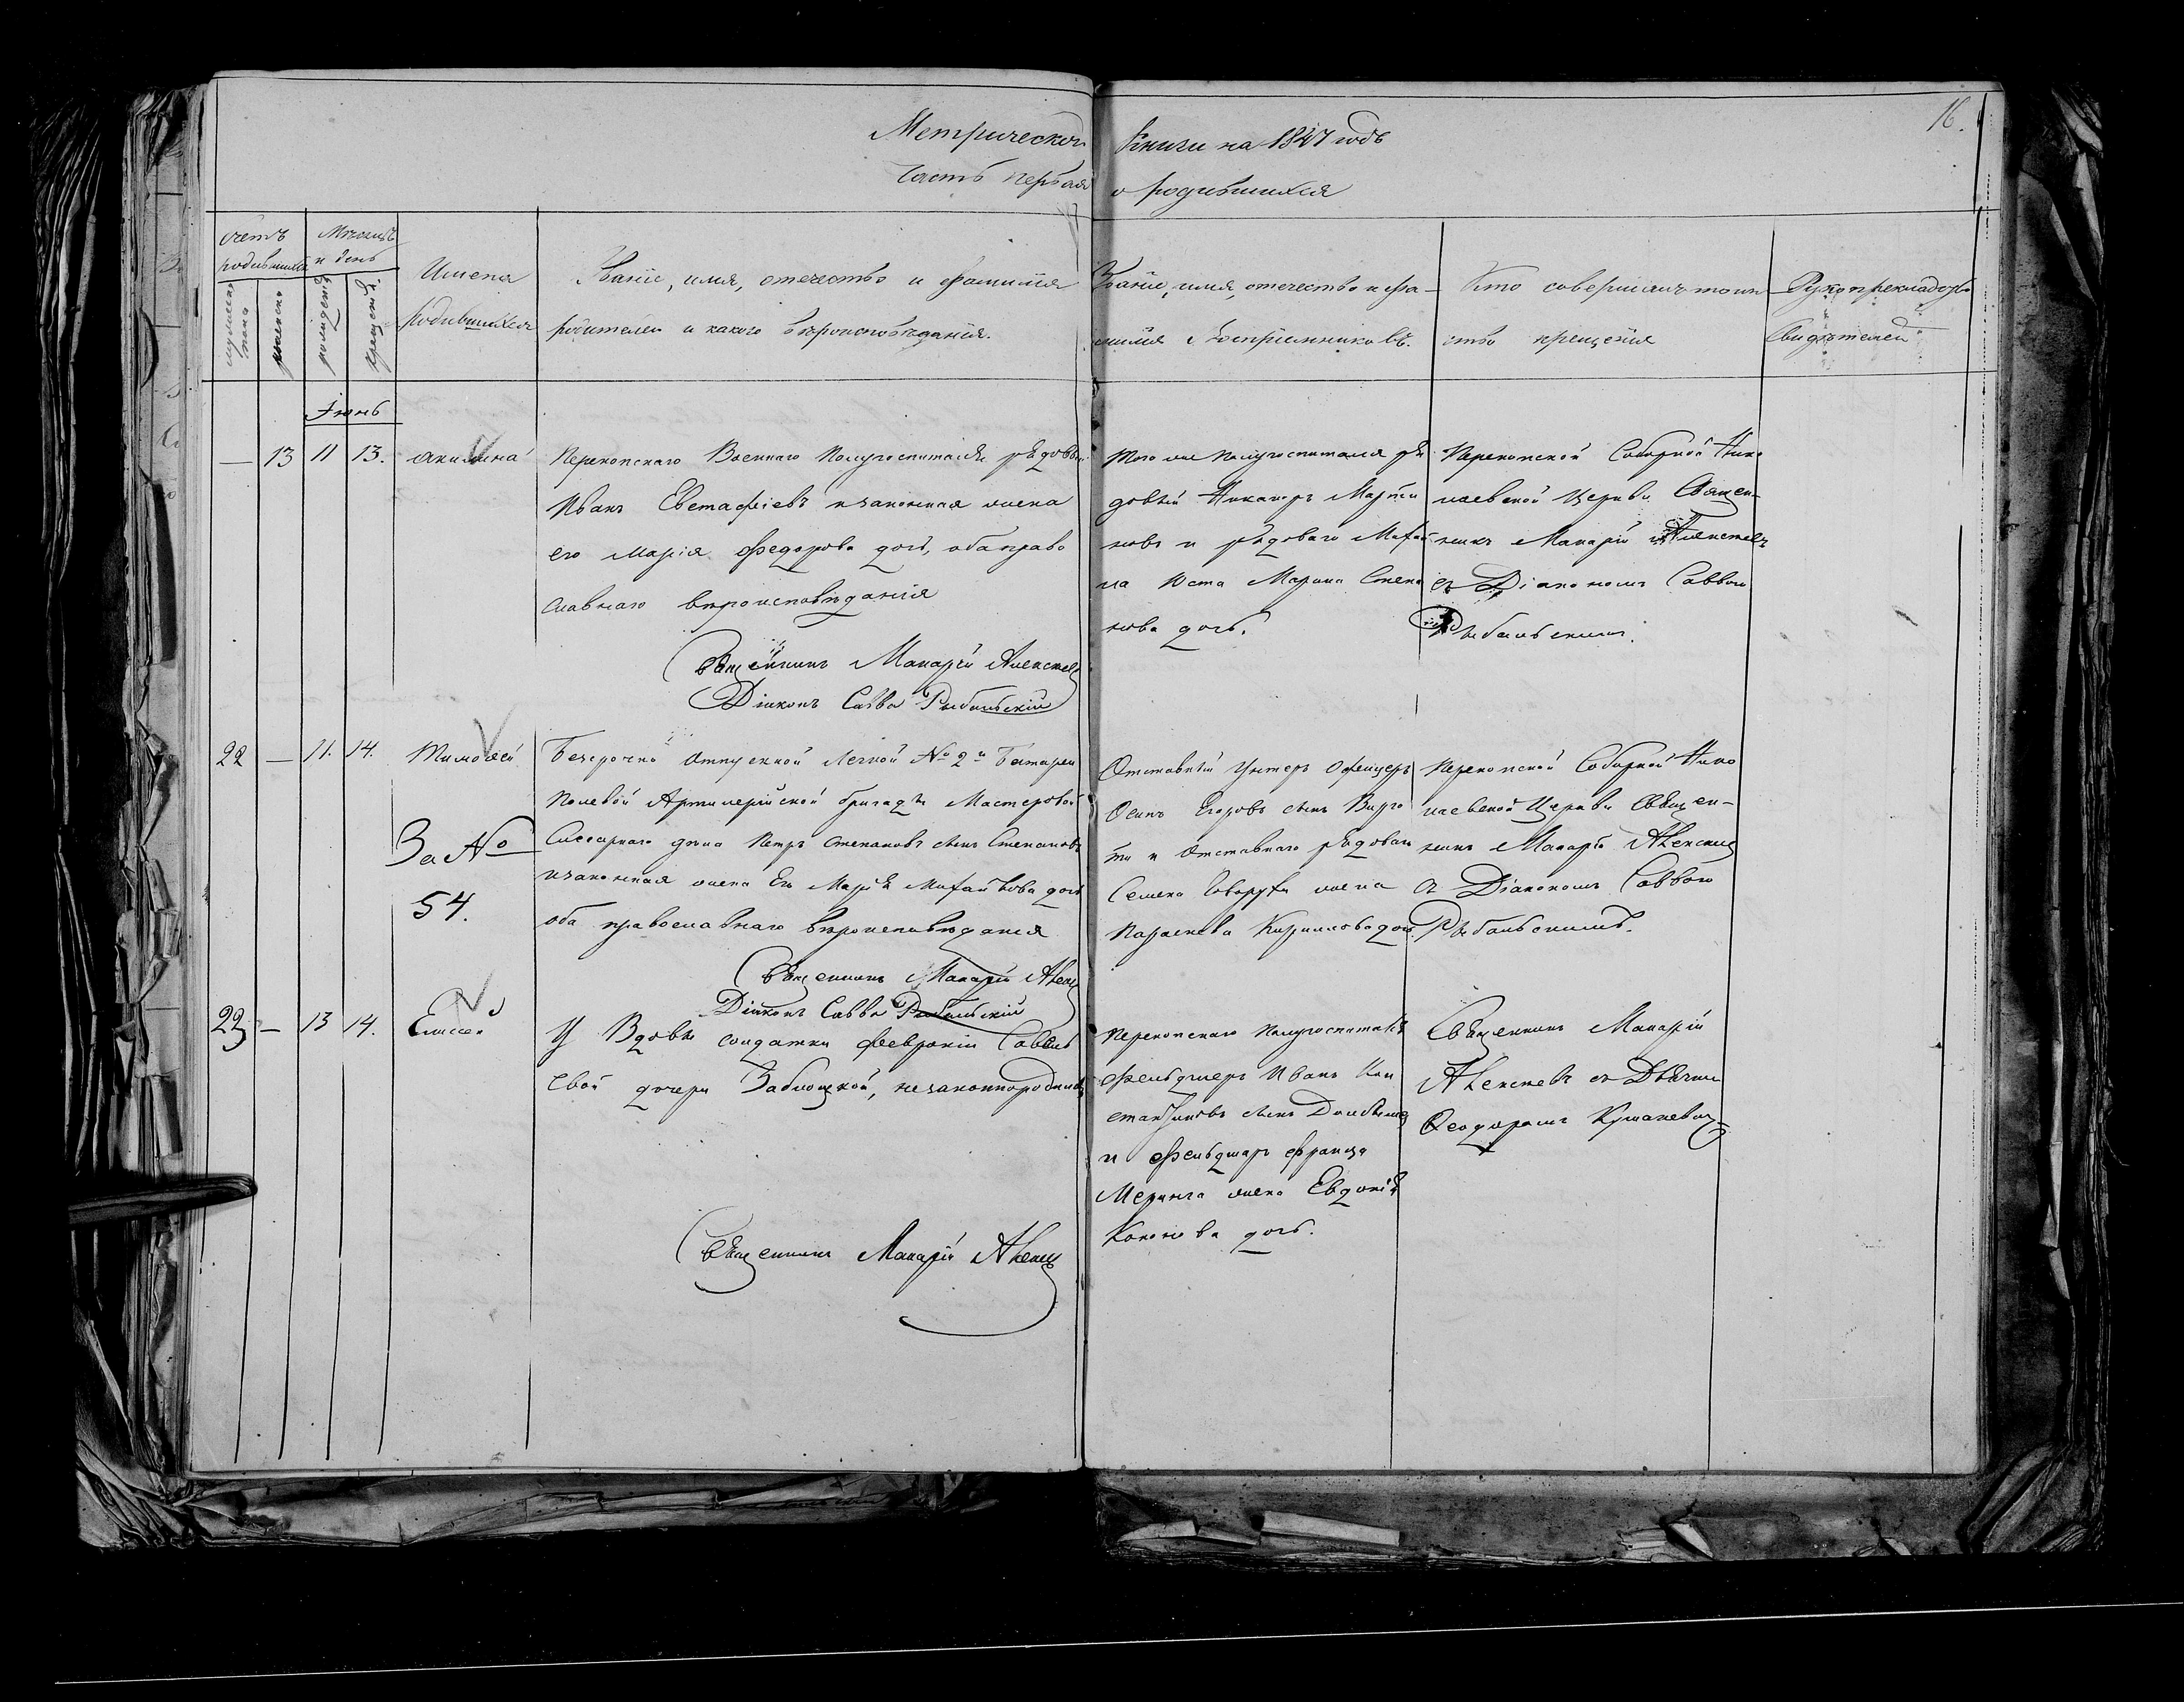 16.
Метрической Книги на 1847 годъ
Часть первая о родившихся
Счетъ родившихся
мужеска пола
женска
Мѣсяцъ и день
рожденія
крещенія
Имена родившихся
Званіе, имя, отечество и фамилія
родителей и какого вѣроисповѣданія.
Званіе, имя, отечество и фа-
милія Воспріемниковъ.
Кто совершалъ таин
ство крещенія
Рукоприкладство
Свидѣтелей
Іюнь
— 13 11 13. Акилина
Перекопскаго Военнаго Полугоспиталя рядовый
Иванъ Евстафіевъ и законная жена
его Марія Федорова дочь, оба право
славнаго вѣроисповѣданія
Священникъ Макарій Алексѣев
Діаконъ Савва Рыбальскій
того же полугоспиталя ря
довый Никаноръ Марти
новъ и рядоваго Михай
ла Юста Марина Степа
нова дочь.
Перекопской Соборной Нико
лаевской Церкви Священ-
никъ Макарій Алексѣевъ
съ Діакономъ Саввою
Рыбальскимъ.
22 — 11. 14. Тимофей
За №
54.
Безсрочно отпускной Легкой № 2й Батареи
Полевой Артилерійской бригады Мастеровой
Слесарнаго дѣла Петръ Степановъ сынъ Степановъ
и законная жена Его Марія Михайлова дочь
оба православнаго вѣроисповѣданія
Священникъ Макарій Алексѣ
Діаконъ Савва Рыбальскій
Отставный Унтеръ Офицеръ
Осипъ Егоровъ сынъ
и отставнаго рядоваго
Семена жена
Параскева Кириллова дочь.
Перекопской Соборной Нико
лаевской Церкви Священ-
никъ Макарій Алексѣевъ
съ Діакономъ Саввою
Рыбальскимъ.
23 — 13 14. Елисей
У Вдовы солдатки Февроніи Савель
евой дочери Заблоцкой, незаконнорожденный
Священникъ Макарій Алексѣ
Перекопскаго Полугоспиталя
Фельдшеръ Иванъ Кон
стантиновъ сынъ
и фельдшара Франца
Меринга жена Евдокія
Кононова дочь.
Священникъ Макарій
Алексѣевъ съ Дьячко
Ѳеодоромъ